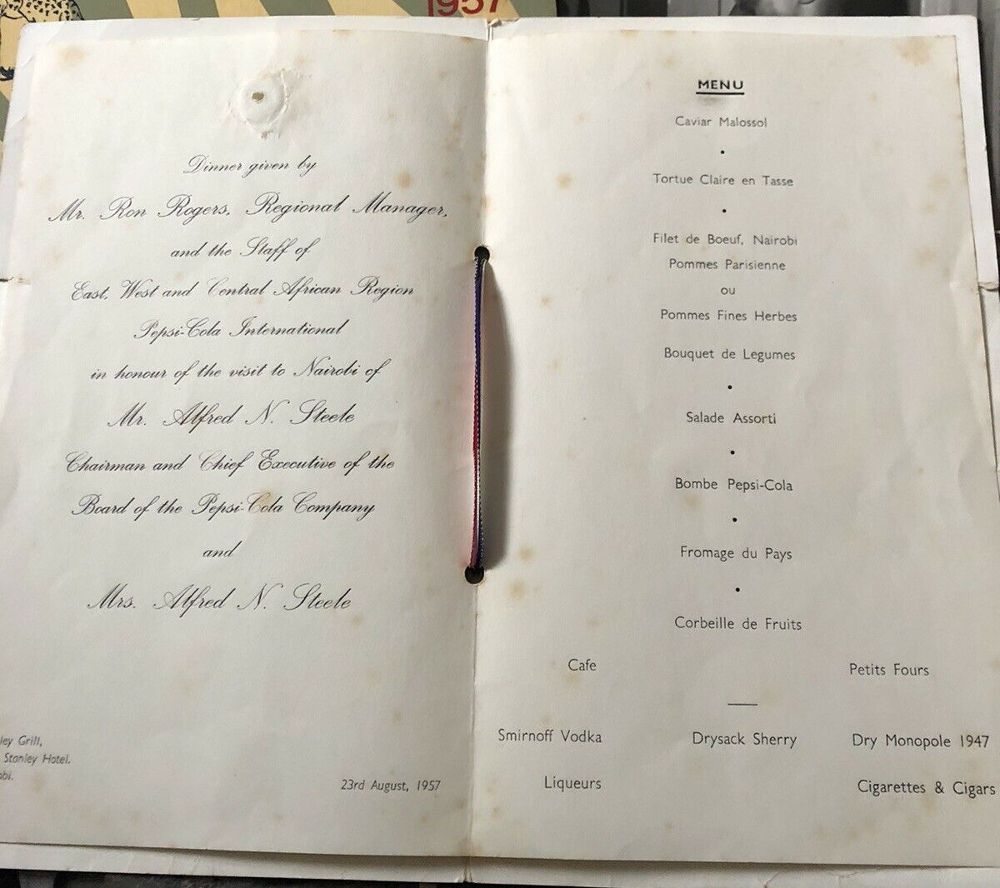 1957
Dinner given by
Mr. Ron Rogers, Regional Manager,
and the Staff of
East, West and Central African Region
Pepsi-Cola International
in honour of the visit to Nairobi of
Mr. Alfred N. Steele
Chairman and Chief Executive of the
Board of the Pepsi-Cola Company
and
Mrs. Alfred N. Steele
ley Grill,
Stanley Hotel.
obi.
23rd August, 1957
MENU
Caviar Malossol
•
Tortue Claire en Tasse
•
Filet de Boeuf, Nairobi
Pommes Parisienne
ou
Pommes Fines Herbes
Bouquet de Legumes
•
Salade Assorti
•
Bombe Pepsi-Cola
•
Fromage du Pays
•
Corbeille de Fruits
Cafe Petits Fours
Smirnoff Vodka Drysack Sherry Dry Monopole 1947
Liqueurs Cigarettes & Cigars